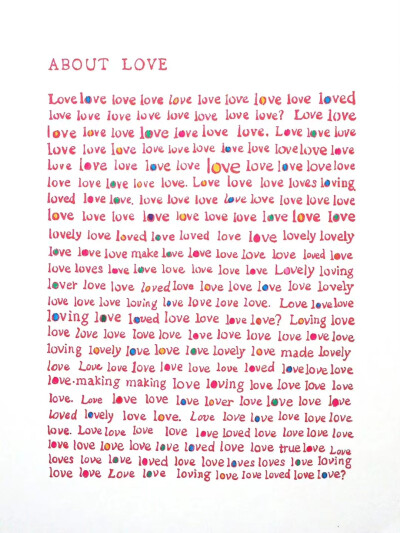 ABOUT LOVE
Love love love love love love love love love loved
love love love love love love love love love? Love love
love love love love love love love. Love love love
love love love love love love love love love love love
love love love love love love love love love love
love love love love love. Love love love loves loving
loved love love. love love love love love love love love
love love love love love love love love love love
lovely love loved love loved love love lovely lovely
love love love make love love love love love loved love
love loves love love love love love love Lovely loving
lover love love loved love love love love love lovely
love love love loving love love love love. Love love love
loving love loved love love love love? Loving love
love love love love love love love love love love love
loving lovely love love love lovely love made lovely
love Love love love love love love loved love love love
love-making making love loving love love love love
love. Love love love love lover love love love love
loved lovely love love. Love love love love love love
love. Love love love love love loved love love love love
love love love love love loved love love true love Love
loves love love loved love love loves loves love loving
love love Love love loving love love loved love love?